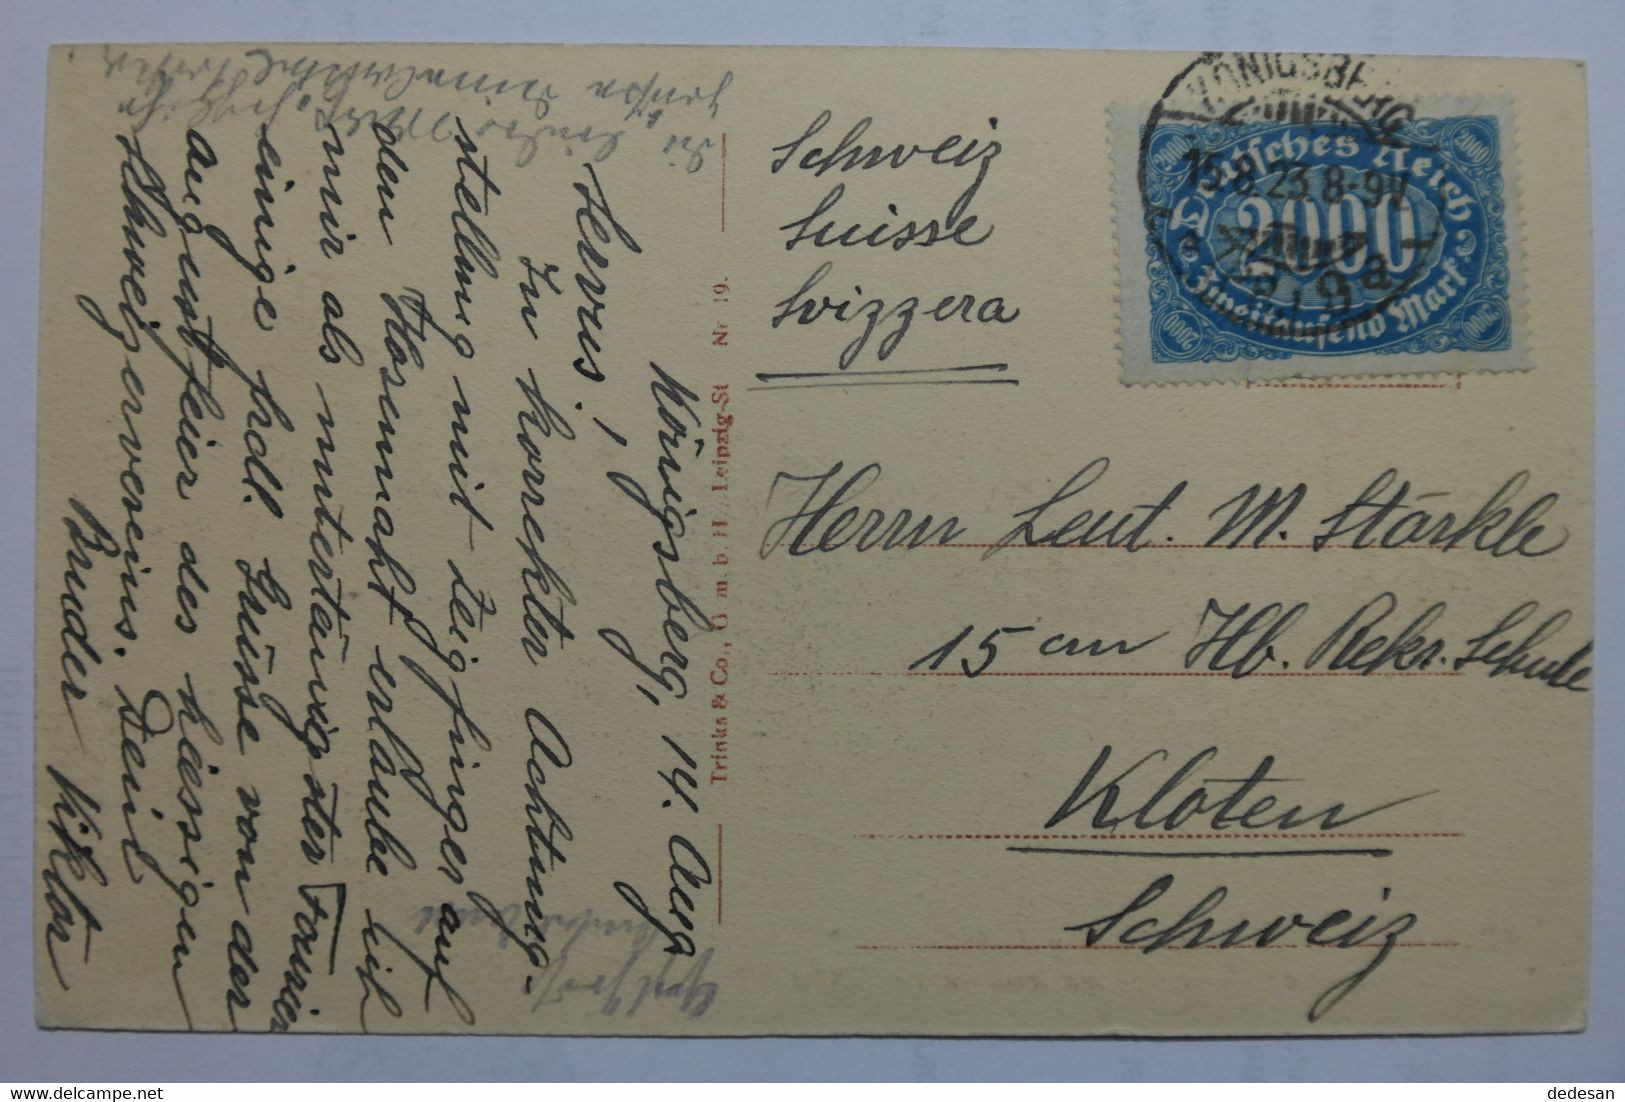 Königsberg, 14. Aug
Servus!
In korrekter Achtung-
stellung mit Zeigfinger auf
den Hosennaht erlaube ich
mir als untertänigster Fourier
einige frdl. Grüsse von der
Augustfeier des hiesigen
Schweizervereins. Dein
Bruder Viktor
Trinks & Co., G. m. b. H. Leipzig-St Nr 19.
Schweiz
Suisse
Svizzera
KÖNIGSBERG
15.8.23.8-9V
Deutsches Reich
2000
Zweitausend Mark
Herrn Leut. M. Stärkle
15 cm Hb. Rekr. Schule
Kloten
Schweiz
delcampe.net
dedesan